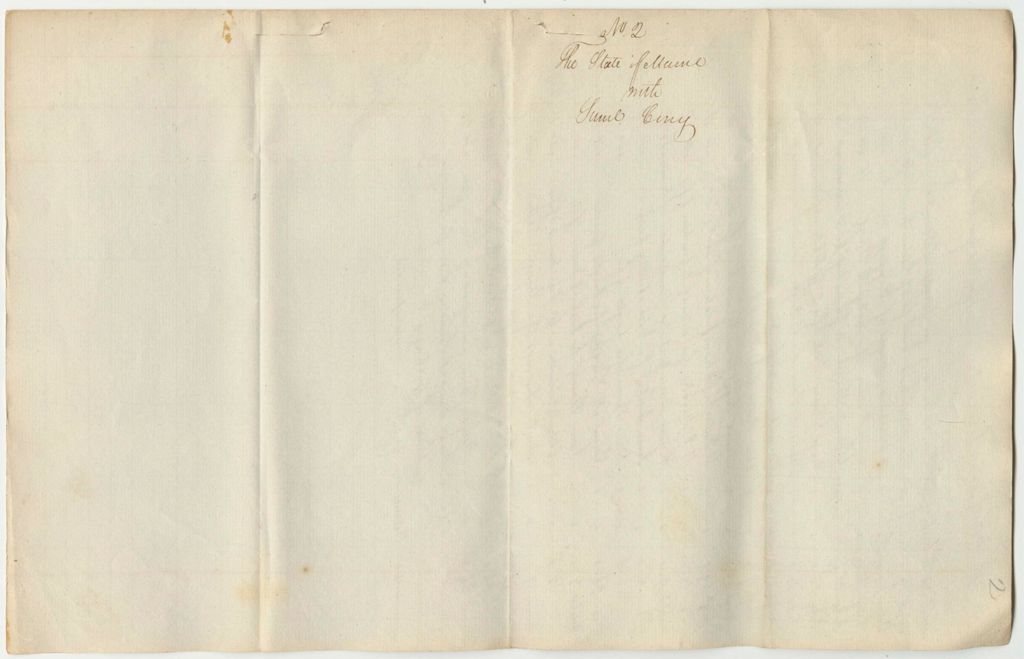 No. 2
The State of Maine
with
Saml Cony
2